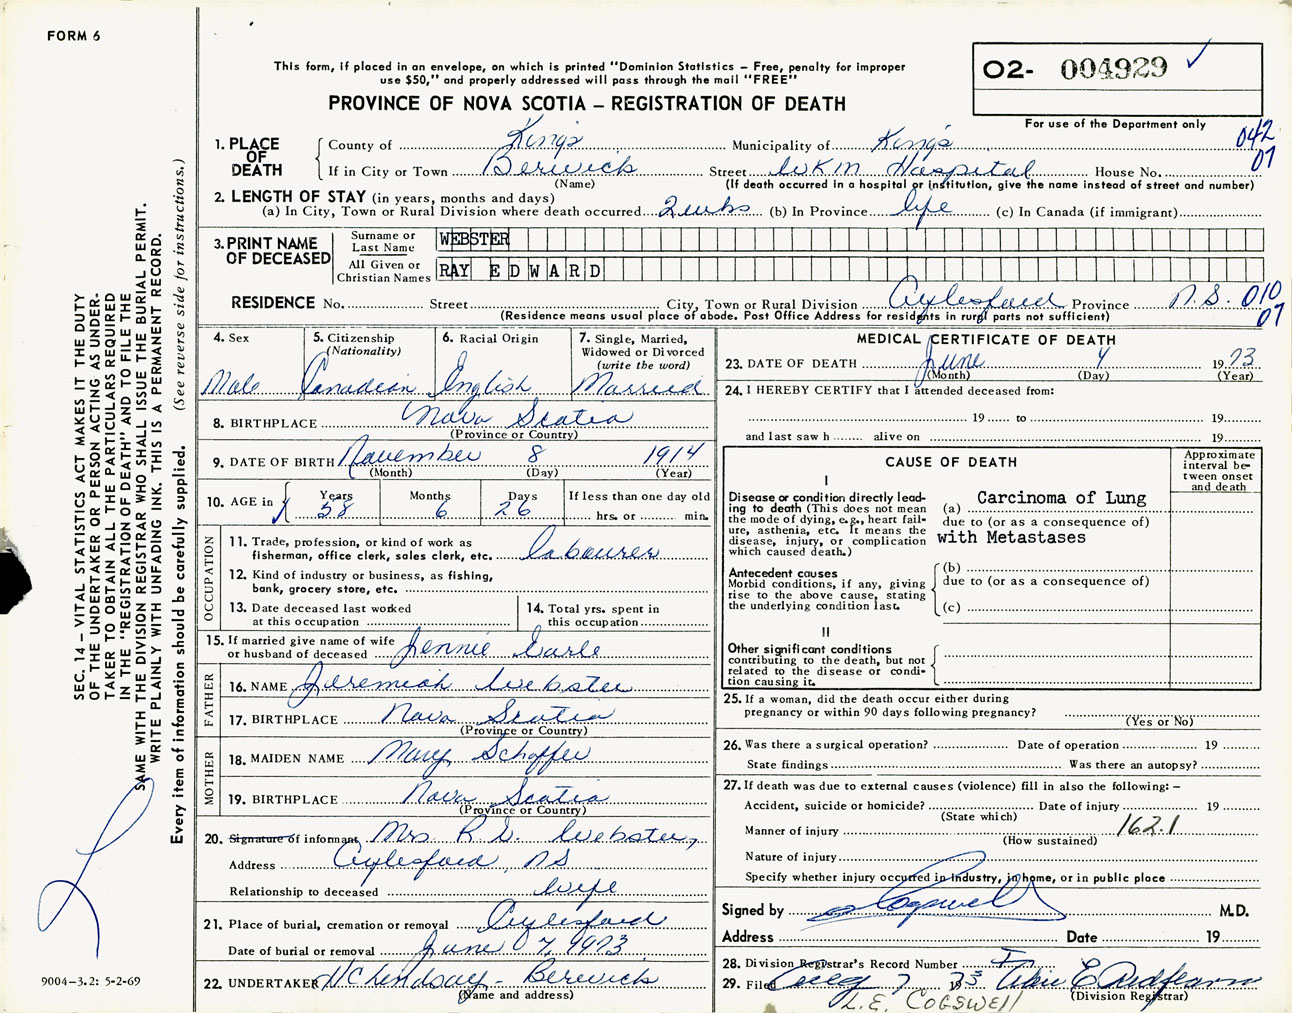 FORM 6
This form, if placed in an envelope, on which is printed "Dominion Statistics – Free, penalty for improper
use $50," and properly addressed will pass through the mail "FREE"
PROVINCE OF NOVA SCOTIA – REGISTRATION OF DEATH
O2- 004929 ✓
For use of the Department only
042
07
SEC. 14 – VITAL STATISTICS ACT MAKES IT THE DUTY
OF THE UNDERTAKER OR PERSON ACTING AS UNDER-
TAKER TO OBTAIN ALL THE PARTICULARS REQUIRED
IN THE "REGISTRATION OF DEATH" AND TO FILE THE
SAME WITH THE DIVISION REGISTRAR WHO SHALL ISSUE THE BURIAL PERMIT.
WRITE PLAINLY WITH UNFADING INK. THIS IS A PERMANENT RECORD.
Every item of information should be carefully supplied. (See reverse side for instructions.)
9004-3.2: 5-2-69
1. PLACE OF DEATH
County of Kings Municipality of Kings
If in City or Town Berwick Street WKM Hospital House No.
(Name) (If death occurred in a hospital or institution, give the name instead of street and number)
2. LENGTH OF STAY (in years, months and days)
(a) In City, Town or Rural Division where death occurred 2 wks (b) In Province life (c) In Canada (if immigrant)
3. PRINT NAME OF DECEASED
Surname or Last Name WEBSTER
All Given or Christian Names RAY EDWARD
RESIDENCE No. Street City, Town or Rural Division Aylesford Province N.S. 010
07
(Residence means usual place of abode. Post Office Address for residents in rural parts not sufficient)
4. Sex
Male
5. Citizenship
(Nationality)
Canadian
6. Racial Origin
English
7. Single, Married,
Widowed or Divorced
(write the word)
Married
8. BIRTHPLACE Nova Scotia
(Province or Country)
9. DATE OF BIRTH November 8 1914
(Month) (Day) (Year)
10. AGE in Years Months Days If less than one day old
58 6 26 hrs. or min.
OCCUPATION
11. Trade, profession, or kind of work as
fisherman, office clerk, sales clerk, etc. labourer
12. Kind of industry or business, as fishing,
bank, grocery store, etc.
13. Date deceased last worked
at this occupation
14. Total yrs. spent in
this occupation
15. If married give name of wife
or husband of deceased Jennie Earle
FATHER
16. NAME Jeremiah Webster
17. BIRTHPLACE Nova Scotia
(Province or Country)
MOTHER
18. MAIDEN NAME Mary Schoffer
19. BIRTHPLACE Nova Scotia
(Province or Country)
20. Signature of informant Mrs. R. E. Webster,
Address Aylesford, NS
Relationship to deceased Wife
21. Place of burial, cremation or removal Aylesford
Date of burial or removal June 07, 1973
22. UNDERTAKER H C Lindsay - Berwick
(Name and address)
MEDICAL CERTIFICATE OF DEATH
23. DATE OF DEATH June 4 1973
(Month) (Day) (Year)
24. I HEREBY CERTIFY that I attended deceased from:
19 to 19
and last saw h alive on 19
CAUSE OF DEATH
Approximate
interval be-
tween onset
and death
I
Disease or condition directly lead-
ing to death (This does not mean
the mode of dying, e.g., heart fail-
ure, asthenia, etc. It means the
disease, injury, or complication
which caused death.)
(a) Carcinoma of Lung
due to (or as a consequence of)
with Metastases
Antecedent causes
Morbid conditions, if any, giving
rise to the above cause, stating
the underlying condition last.
(b)
due to (or as a consequence of)
(c)
II
Other significant conditions
contributing to the death, but not
related to the disease or condi-
tion causing it.
25. If a woman, did the death occur either during
pregnancy or within 90 days following pregnancy?
(Yes or No)
26. Was there a surgical operation? Date of operation 19
State findings Was there an autopsy?
27. If death was due to external causes (violence) fill in also the following: –
Accident, suicide or homicide? Date of injury 19
(State which)
Manner of injury 162.1
(How sustained)
Nature of injury
Specify whether injury occurred in Industry, in home, or in public place
Signed by Cogswell M.D.
Address Date 19
28. Division Registrar's Record Number
29. Filed 7 73
(Division Registrar)
L.E. COGSWELL